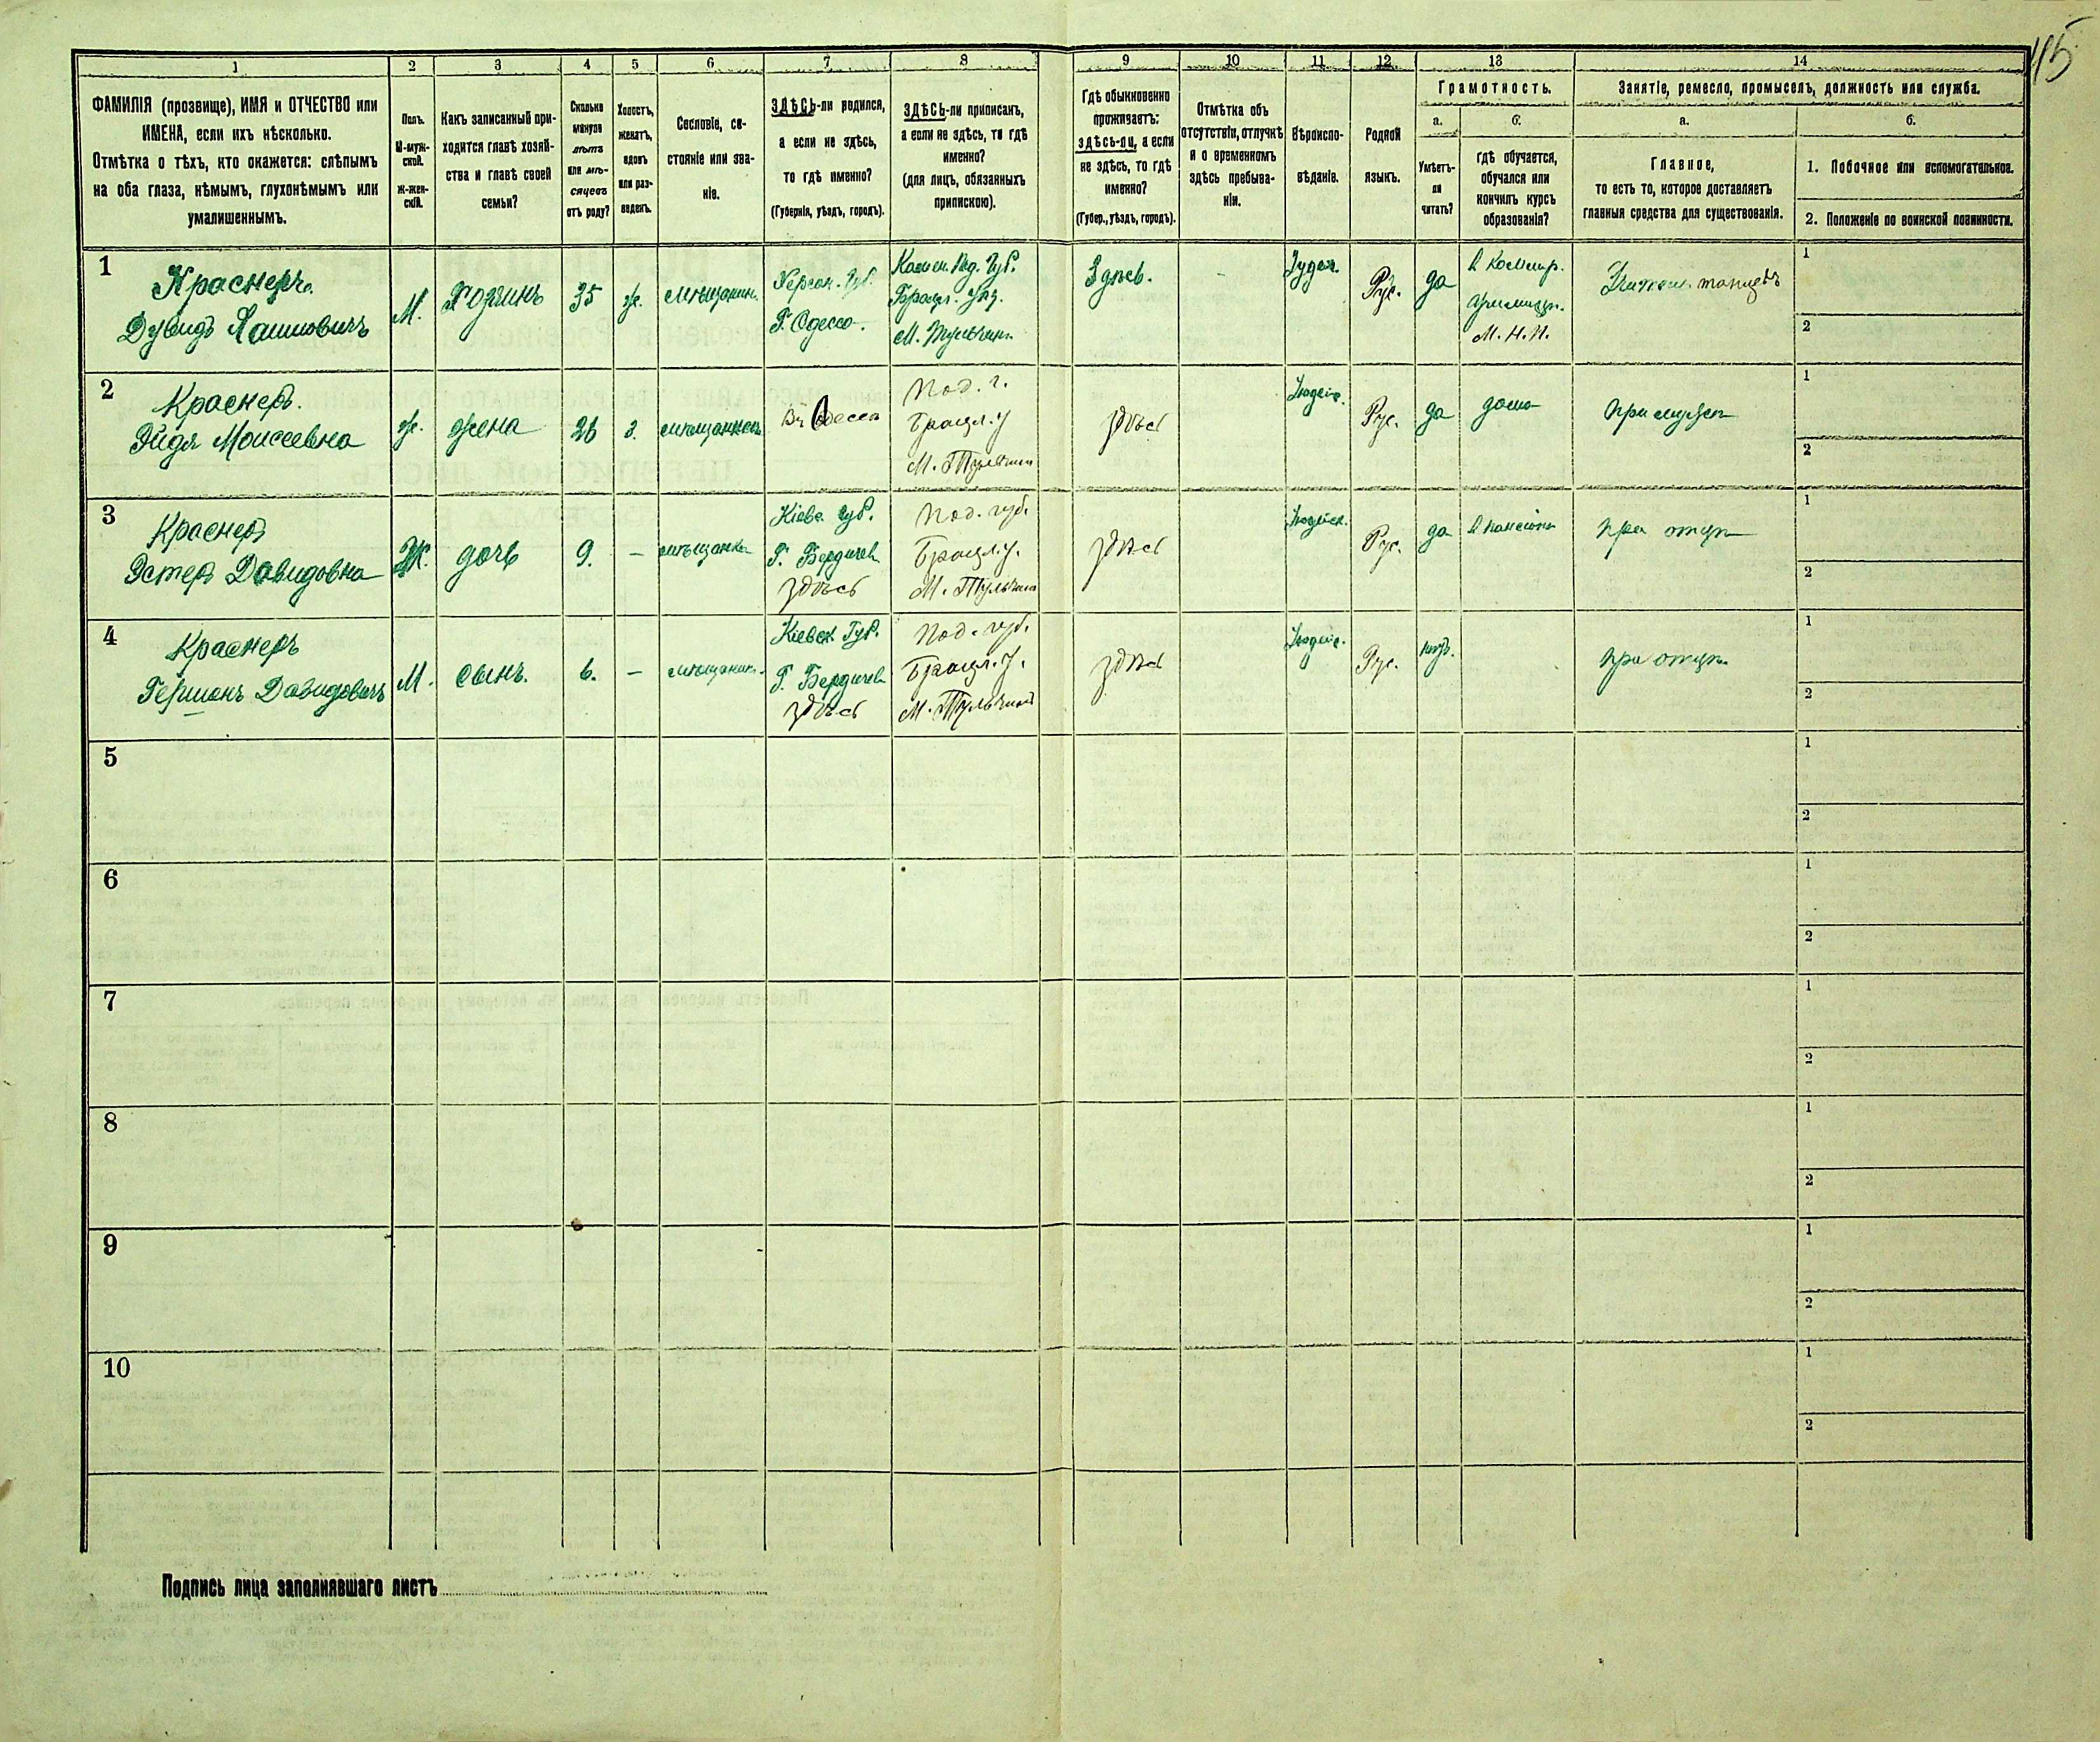 115
1 2 3 4 5 6 7 8 9 10 11 12 13 14
ФАМИЛІЯ (прозвище), ИМЯ и ОТЧЕСТВО или
ИМЕНА, если ихъ нѣсколько.
Отмѣтка о тѣхъ, кто окажется: слѣпымъ
на оба глаза, нѣмымъ, глухонѣмымъ или
умалишеннымъ.
Полъ.
М-муж-
ской.
Ж-жен-
скій.
Какъ записанный при-
ходится главѣ хозяй-
ства и главѣ своей
семьи?
Сколько
минуло
лѣтъ
или мѣ-
сяцевъ
отъ роду?
Холостъ,
женатъ,
вдовъ
или раз-
веденъ.
Сословіе, со-
стояніе или зва-
ніе.
ЗДѢСЬ-ли родился,
а если не здѣсь,
то гдѣ именно?
(Губернія, уѣздъ, городъ).
ЗДѢСЬ-ли приписанъ,
а если не здѣсь, то гдѣ
именно?
(для лицъ, обязанныхъ
припискою).
Гдѣ обыкновенно
проживаетъ:
здѣсь-ли, а если
не здѣсь, то гдѣ
именно?
(Губер., уѣздъ, городъ).
Отмѣтка объ
отсутствіи, отлучкѣ
и о временномъ
здѣсь пребыва-
ніи.
Вѣроиспо-
вѣданіе.
Родной
языкъ.
Грамотность.
а.
Умѣетъ-
ли
читать?
б.
гдѣ обучается,
обучался или
кончилъ курсъ
образованія?
Занятіе, ремесло, промыселъ, должность или служба.
а.
Главное,
то есть то, которое доставляетъ
главныя средства для существованія.
б.
1. Побочное или вспомогательное.
2. Положеніе по воинской повинности.
1
Краснеръ
Дувидъ
М.
Хозяинъ
35
ж.
мѣщанинъ
Херсон. Губ.
Г. Одесса.
Камен. Под. Губ.
Брацл. Уѣз.
М. Тульчинъ
Здѣсь.
-
Іудей.
Рус.
да
М. Н. П.
танцевъ
1
2
2
Краснеръ.
Эйдя Моисеевна
ж.
жена
26
з.
мѣщанка
Въ Одессѣ
Под. г.
Брацл. у
М. Тульчинъ
здѣсь
Іюдейс.
Рус.
да
дома
при мужѣ
1
2
3
Краснеръ
Эстеръ Давидовна
Ж.
дочь
9.
-
мѣщанка
Кіевс. губ.
Г. Бердичевъ
здѣсь
Под. губ.
Брацл. у.
М. Тульчинъ
здѣсь
Іюдейск.
Рус.
да
в пансіонѣ
при отцѣ
1
2
4
Краснеръ
Гершонъ Давидовичъ
М.
сынъ.
6.
-
мѣщанинъ
Кіевск. Губ.
Г. Бердичевъ
здѣсь
Под. губ.
Брацл. у.
М. Тульчинъ
здѣсь
Іюдейс.
Рус.
нѣтъ.
при отцѣ.
1
2
5
1
2
6
1
2
7
1
2
8
1
2
9
1
2
10
1
2
Подпись лица заполнявшаго листъ